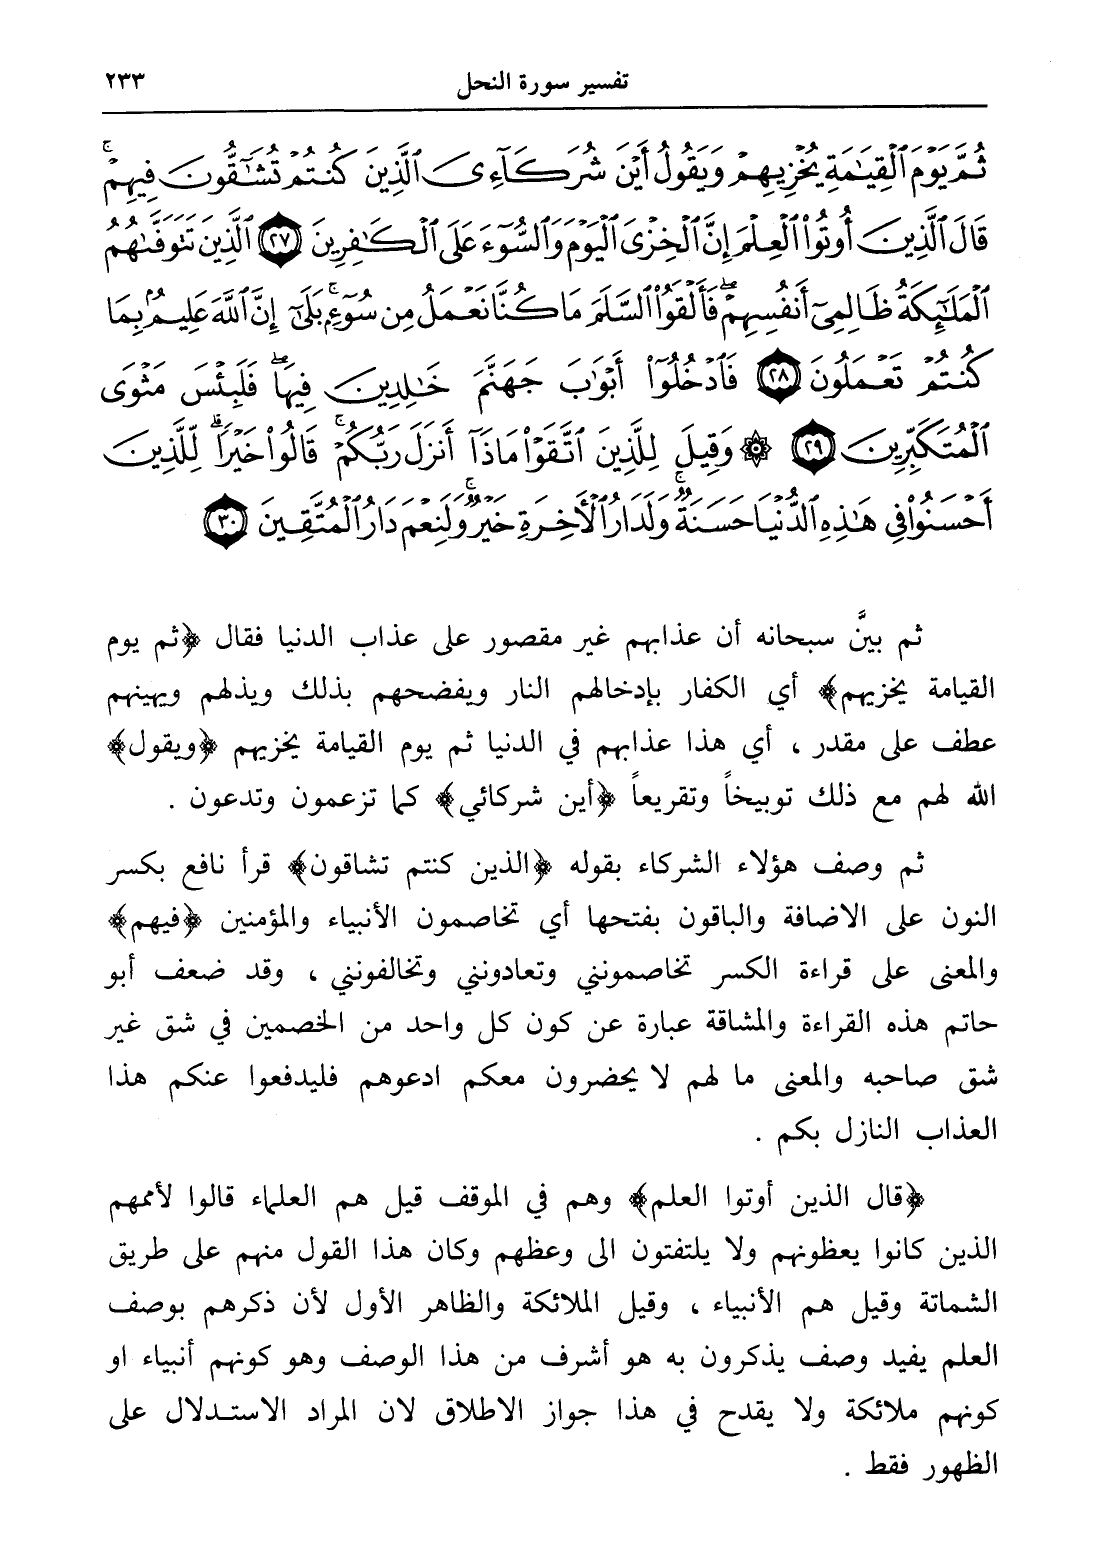 تفسير سورة النحل ٢٣٣
ثُمَّ يَوْمَ ٱلْقِيَٰمَةِ يُخْزِيهِمْ وَيَقُولُ أَيْنَ شُرَكَآءِىَ ٱلَّذِينَ كُنتُمْ تُشَٰٓقُّونَ فِيهِمْ ۚ
قَالَ ٱلَّذِينَ أُوتُوا۟ ٱلْعِلْمَ إِنَّ ٱلْخِزْىَ ٱلْيَوْمَ وَٱلسُّوٓءَ عَلَى ٱلْكَٰفِرِينَ ٢٧ ٱلَّذِينَ تَتَوَفَّىٰهُمُ
ٱلْمَلَٰٓئِكَةُ ظَالِمِىٓ أَنفُسِهِمْ ۖ فَأَلْقَوُا۟ ٱلسَّلَمَ مَا كُنَّا نَعْمَلُ مِن سُوٓءٍۭ ۚ بَلَىٰٓ إِنَّ ٱللَّهَ عَلِيمٌۢ بِمَا
كُنتُمْ تَعْمَلُونَ ٢٨ فَٱدْخُلُوٓا۟ أَبْوَٰبَ جَهَنَّمَ خَٰلِدِينَ فِيهَا ۖ فَلَبِئْسَ مَثْوَى
ٱلْمُتَكَبِّرِينَ ٢٩ ۞ وَقِيلَ لِلَّذِينَ ٱتَّقَوْا۟ مَاذَآ أَنزَلَ رَبُّكُمْ ۚ قَالُوا۟ خَيْرًا ۗ لِّلَّذِينَ
أَحْسَنُوا۟ فِى هَٰذِهِ ٱلدُّنْيَا حَسَنَةٌ ۚ وَلَدَارُ ٱلْءَاخِرَةِ خَيْرٌ ۚ وَلَنِعْمَ دَارُ ٱلْمُتَّقِينَ ٣٠
ثم بيَّن سبحانه أن عذابهم غير مقصور على عذاب الدنيا فقال ﴿ثم يوم
القيامة يخزيهم﴾ أي الكفار بإدخالهم النار ويفضحهم بذلك ويذلهم ويهينهم
عطف على مقدر ، أي هذا عذابهم في الدنيا ثم يوم القيامة يخزيهم ﴿ويقول﴾
الله لهم مع ذلك توبيخاً وتقريعاً ﴿أين شركائي﴾ كما تزعمون وتدعون .
ثم وصف هؤلاء الشركاء بقوله ﴿الذين كنتم تشاقون﴾ قرأ نافع بكسر
النون على الاضافة والباقون بفتحها أي تخاصمون الأنبياء والمؤمنين ﴿فيهم﴾
والمعنى على قراءة الكسر تخاصمونني وتعادونني وتخالفونني ، وقد ضعف أبو
حاتم هذه القراءة والمشاقة عبارة عن كون كل واحد من الخصمين في شق غير
شق صاحبه والمعنى ما لهم لا يحضرون معكم ادعوهم فليدفعوا عنكم هذا
العذاب النازل بكم .
﴿قال الذين أوتوا العلم﴾ وهم في الموقف قيل هم العلماء قالوا لأممهم
الذين كانوا يعظونهم ولا يلتفتون الى وعظهم وكان هذا القول منهم على طريق
الشماتة وقيل هم الأنبياء ، وقيل الملائكة والظاهر الأول لأن ذكرهم بوصف
العلم يفيد وصف يذكرون به هو أشرف من هذا الوصف وهو كونهم أنبياء او
كونهم ملائكة ولا يقدح في هذا جواز الاطلاق لان المراد الاستدلال على
الظهور فقط .